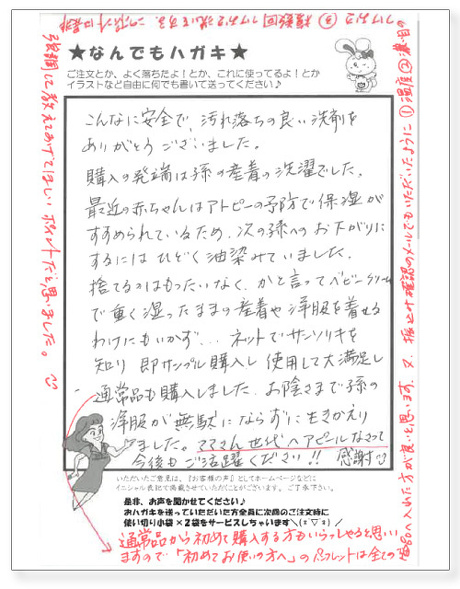 ★なんでもハガキ★
ご注文とか、よく落ちたよ!とか、これに使ってるよ!とか
イラストなど自由に何でも書いて送ってください♪
こんなに安全で、汚れ落ちの良い洗剤を
ありがとうございました。
購入の発端は孫の産着の洗濯でした。
最近の赤ちゃんはアトピーの予防で保湿が
すすめられているため、次の孫へのお下がりに
するにはひどく油染みていました。
捨てるのはもったいなく、かと言ってベビークリーム
で重く湿ったままの産着や洋服を着せる
わけにもいかず… ネットでサンソリキを
知り 即サンプル購入し 使用して大満足し
通常品も購入しました。お陰さまで孫の
洋服が無駄にならずに生きかえり
ました。ママさん世代へアピールなさって
今後もご活躍ください!! 感謝
いただいたご意見は、『お客様の声』としてホームページなどに
イニシャル表記で掲載させていただくことがございます。ご了承下さい。
是非、お声を聞かせてください♪
おハガキを送っていただいた方全員に次回のご注文時に
使い切り小袋×2袋をサービスしちゃいます＼(≧▽≦)／
通常品から初めて購入する方もいらっしゃると思い
ますので「初めてお使いの方へ」のパンフレットは全ての
商品へ入れた方が良いと思います。又、振込み確認のメールでもいただいたように ①温度②濃度の
つけおき ③
強調して教えてあげてほしい ポイントだと思いました。